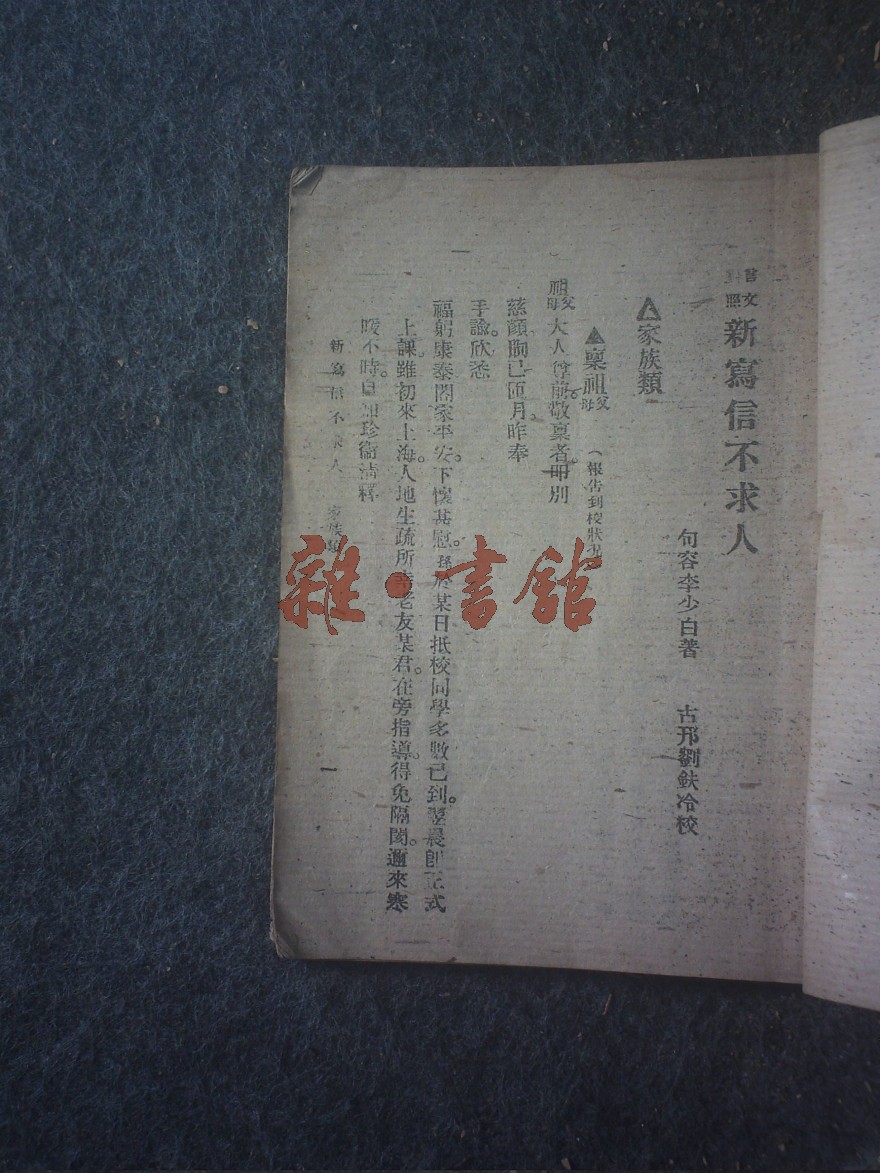 言文對照 新寫信不求人
句容李少白著　古邗劉鉄冷校
△家族類
▲稟祖父母（報告到校狀況）
祖父母大人尊前。敬稟者。叩別
慈顏。眴已匝月。昨奉
手諭。欣悉
福躬康泰。閤家平安。下懷甚慰。孫於某日抵校。同學多數已到。翌晨即正式
上課。雖初來上海。人地生疏。所幸老友某君。在旁指導。得免隔閡。邇來寒
暖不時。自知珍衛。請釋
新寫信不求人　家族類
一
雜·書館